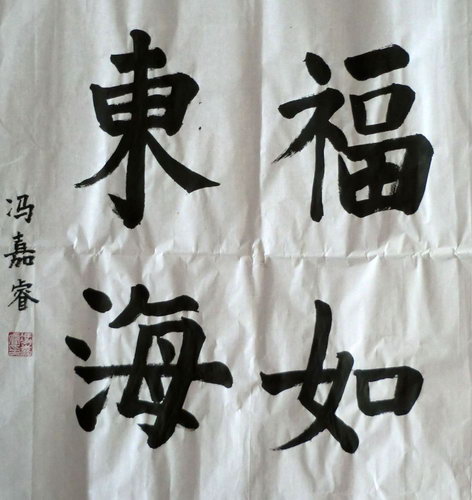 福如
東海
冯嘉睿